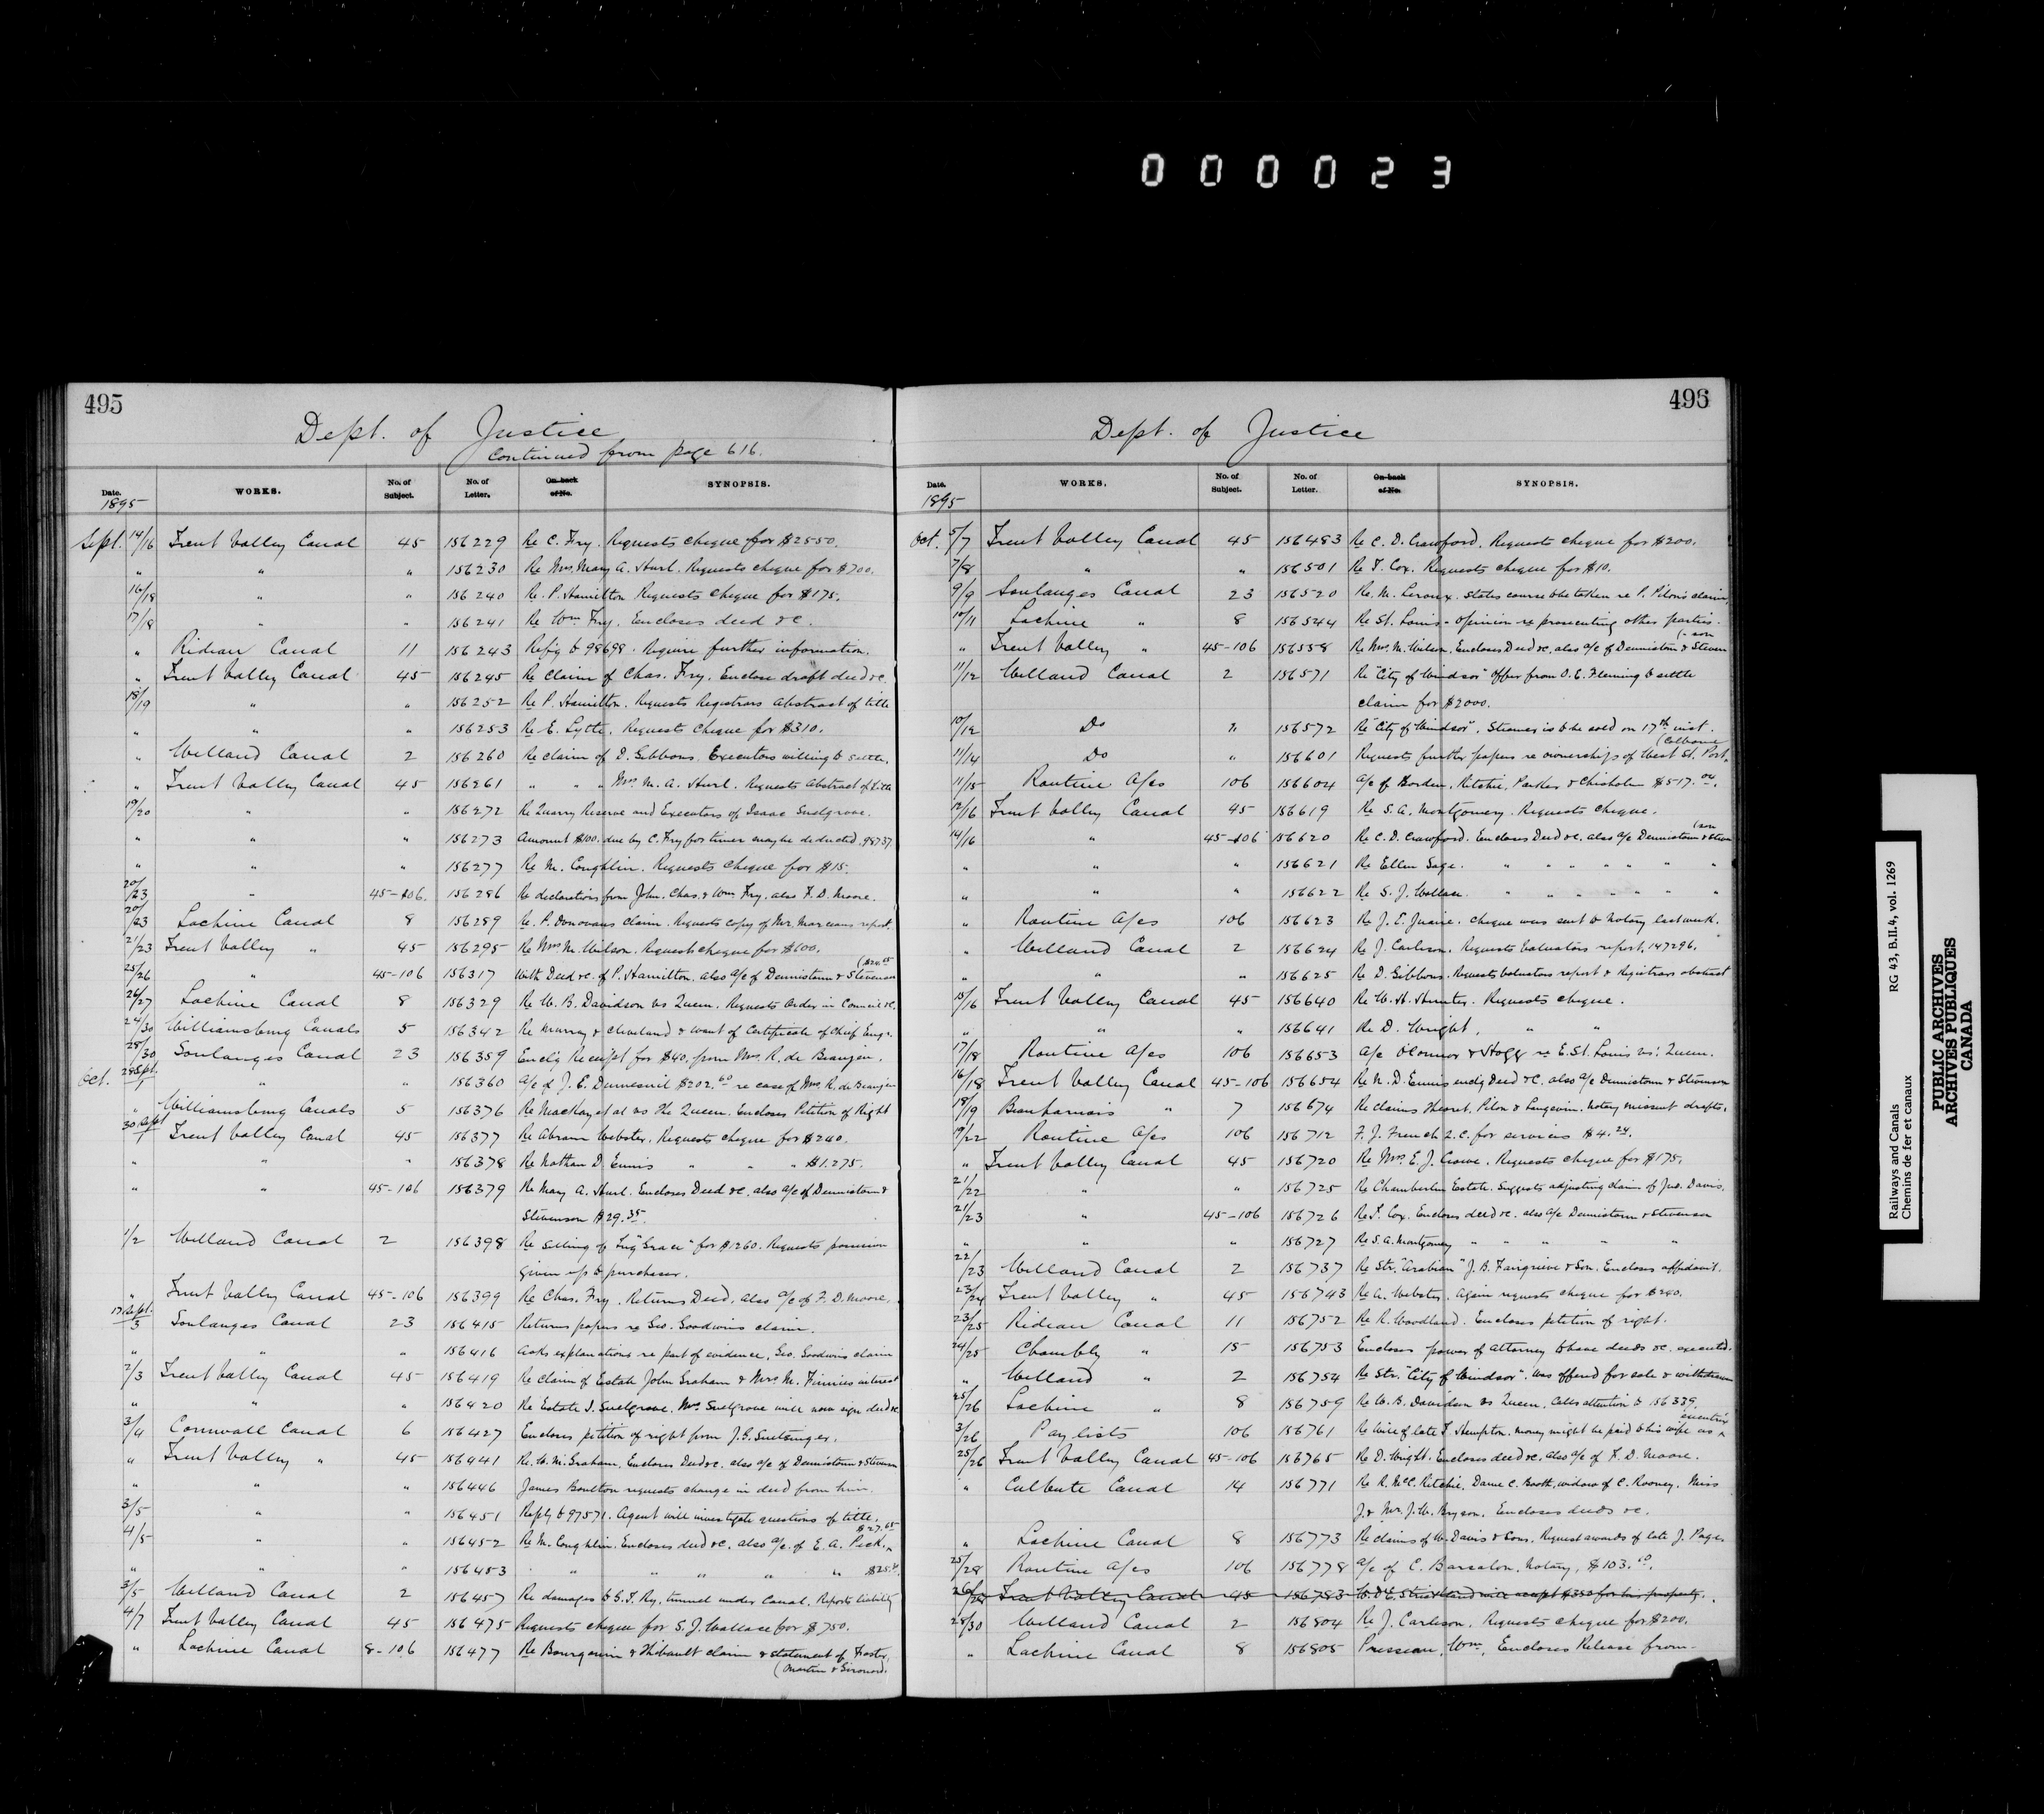 000023
495
Dept. of Justice
Continued from page 616.
Date. WORKS. No. of Subject. No. of Letter. On back of No. SYNOPSIS.
1895
Sept. 14/16 Trent Valley Canal 45 156229 Re C. Fry. Requests cheque for $2550.
" " " 156230 Re Mrs. Mary A. Hurl. Requests cheque for $700.
16/18 " " 156240 Re. P. Hamilton Requests cheque for $175.
17/18 " " 156241 Re Wm Fry. Encloses deed &c.
" Rideau Canal 11 156243 Refg to 98698. Require further information.
" Trent Valley Canal 45 156245 Re Claim of Chas. Fry. Enclose draft deed &c.
18/19 " " 156252 Re P. Hamilton. Requests Registrars Abstract of title
" " " 156253 Re E. Lytle. Requests cheque for $310.
" Welland Canal 2 156260 Re claim of D. Gibbons. Executors willing to settle.
" Trent Valley Canal 45 156261 " " " Mrs. M. A. Hurl. Requests Abstract of title
19/20 " " 156272 Re Quarry Reserve and Executors of Isaac Snelgrove.
" " " 156273 Amount $100. due by C. Fry for timer may be deducted. 98737.
" " " 156277 Re M. Coughlin. Requests cheque for $15.
20/23 " 45-106. 156286 Re declarations from John, Chas. & Wm Fry, also F. D. Moore.
20/23 Lachine Canal 8 156289 Re. P. Donovans claim. Requests copy of Mr. Marceaus report.
21/23 Trent Valley " 45 156295 Re Mrs M. Wilson. Request cheque for $100.
25/26 " 45-106 156317 With Deed &c. of P. Hamilton. also a/c of Dennistoun & Stevenson
26/27 Lachine Canal 8 156329 Re W. B. Davidson vs Queen. Requests Order in Council &c.
24/30 Williamsburg Canals 5 156342 Re Murray & Cleveland & want of Certificate of Chief Engr.
28/30 Soulanges Canal 23 156359 Enclg Receipt for $40. from Mrs. R. de Beaujeu.
Oct. 28 Sept./1 " " 156360 a/c of J. E. Dumesnil $202.60 re case of Mrs. R. de Beaujeu
" Williamsburg Canals 5 156376 Re MacKay et al vs The Queen. Encloses Petition of Right
30 Sept Trent Valley Canal 45 156377 Re Abram Webster. Requests cheque for $240.
" " " 156378 Re Nathan D. Ennis " " " $1.275.
" " 45-106 156379 Re Mary A. Hurl. Encloses Deed &c. also a/c of Dennistoun &
Stevenson $29.35.
1/2 Welland Canal 2 156398 Re Selling of Tug "Grace" for $1260. Requests possession
given up to purchaser.
" Trent Valley Canal 45-106 156399 Re Chas. Fry. Returns Deed, also a/c of F. D. Moore.
17 Sept./3 Soulanges Canal 23 156415 Returns papers re Geo. Goodwins claim.
" " " 156416 Asks explanations re part of evidence, Geo. Goodwins claim
2/3 Trent Valley Canal 45 156419 Re claim of Estate John Graham & Mrs. M. Finnies interest
" " " 156420 Re Estate I. Snelgrove. Mrs. Snelgrove will now sign deed &c
3/4 Cornwall Canal 6 156427 Encloses petition of right from J. G. Snetsinger.
" Trent Valley " 45 156441 Re. W. M. Graham. Encloses Deed &c. also a/c of Dennistoun & Stevenson
" " " 156446 James Boulton requests change in deed from him.
3/5 " " 156451 Reply to 97571. Agent will investigate questions of title.
4/5 " " 156452 Re M. Coughlin. Encloses deed &c. also a/c. of E. A. Peck. $27.65
" " " 156453 " " " " " " $25.
3/5 Welland Canal 2 156457 Re damages to G. T. Ry. tunnel under Canal. Reports liability
4/7 Trent Valley Canal 45 156475 Requests cheque for S. J. Wallace for $750.
" Lachine Canal 8-106 156477 Re Bourgouin & Thibault claim & statement of Foster,
(Martin & Girouard.
496
Dept. of Justice
Date. WORKS. No. of Subject. No. of Letter. On back of No. SYNOPSIS.
1895
Oct. 5/7 Trent Valley Canal 45 156483 Re C. D. Crawford. Requests cheque for $200.
7/8 " " 156501 Re T. Cox. Requests cheque for $10.
9/9 Soulanges Canal 23 156520 Re. M. Leroux. States course to be taken re P. Pilons claim
10/11 Lachine " 8 156544 Re St. Louis - opinion re prosecuting other parties.
" Trent Valley " 45-106 156558 Re Mrs. M. Wilson. Encloses Deed &c. also a/c of Dennistoun & Steven
(-son
11/12 Welland Canal 2 156571 Re "City of Windsor" Offer from O. E. Fleming to settle
claim for $2000.
10/12 Do " 156572 Re "City of Windsor". Steamer is to be sold on 17th inst.
11/14 Do " 156601 Requests further papers re ownerships of West St. Port
(Colborne
11/15 Routine A/cs 106 156604 a/c of Borden, Ritchie, Parker & Chisholm $517.04.
12/16 Trent Valley Canal 45 156619 Re S. A. Montgomery. Requests cheque.
14/16 " 45-106 156620 Re C. D. Crawford. Encloses Deed &c. also a/c Dennistoun & Steven
(son
" " " 156621 Re Ellen Sage. " " " " " " "
" " " 156622 Re S. J. Wallace. " " " " " " "
" Routine A/cs 106 156623 Re J. E. Juaire. Cheque was sent to Notary last week.
" Welland Canal 2 156624 Re J. Carlson. Requests Valuators report. 147296.
" " " 156625 Re D. Gibbons. Requests Valuators report & Registrars abstract
15/16 Trent Valley Canal 45 156640 Re W. H. Hunter. Requests cheque.
" " " 156641 Re D. Wright. " "
17/18 Routine A/cs 106 156653 a/c O'Connor & Hogg re E. St. Louis vs. Queen.
16/18 Trent Valley Canal 45-106 156654 Re N. D. Ennis enclg Deed &c. also a/c Dennistoun & Stevenson
18/19 Beauharnois " 7 156674 Re claims Theoret, Pilon & Langevin. Notary missent drafts.
19/22 Routine A/cs 106 156712 F. J. French Q.C. for services $4.24.
" Trent Valley Canal 45 156720 Re Mrs. E. J. Crowe. Requests cheque for $175.
21/22 " " 156725 Re Chamberlin Estate. Suggests adjusting claim of Jno. Davis.
21/23 " 45-106 156726 Re T. Cox. Encloses deed &c. also a/c Dennistoun & Stevenson
" " " 156727 Re S. A. Montgomery " " " " "
22/23 Welland Canal 2 156737 Re Str. "Arabian" J. B. Fairgrieve & Son. Encloses affidavit.
23/24 Trent Valley " 45 156743 Re A. Webster. Again requests cheque for $240.
23/25 Rideau Canal 11 156752 Re R. Woodland. Encloses petition of right.
24/25 Chambly " 15 156753 Encloses power of attorney to have deeds &c. executed.
" Welland " 2 156754 Re Str. "City of Windsor". Was offered for sale & withdrawn
25/26 Lachine " 8 156759 Re W. B. Davidson vs Queen. Calls attention to 156329.
3/26 Pay lists 106 156761 Re Will of late T. Hempton. Money might be paid to his wife as executrix
25/26 Trent Valley Canal 45-106 156765 Re D. Wright. Encloses deed &c. also a/c of F. D. Moore.
" Culbute Canal 14 156771 Re R. McC. Ritchie, Dame C. Booth, widow of C. Rooney, Miss
J. & Mr. J. W. Bryson. Encloses deeds &c.
" Lachine Canal 8 156773 Re claims of W. Davis & Sons. Request awards of late J. Page
25/28 Routine A/cs 106 156778 a/c of C. Barsalou, Notary, $103.60.
26/28 Trent Valley Canal 45 156783 W. D. E. Strickland will accept $350 for his property.
28/30 Welland Canal 2 156804 Re J. Carlson. Requests cheque for $200.
" Lachine Canal 8 156805 Prussian, Wm, Encloses Release from
Railways and Canals RG 43, B.II.4, vol. 1269
Chemins de fer et canaux
PUBLIC ARCHIVES
ARCHIVES PUBLIQUES
CANADA